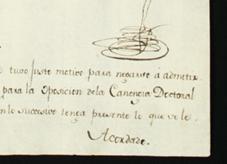 tubo justo motivo para negarse à admitir
para la Oposicion de la Canongia Doctoral
en lo succesivo tenga presente lo que va le
Acordado.